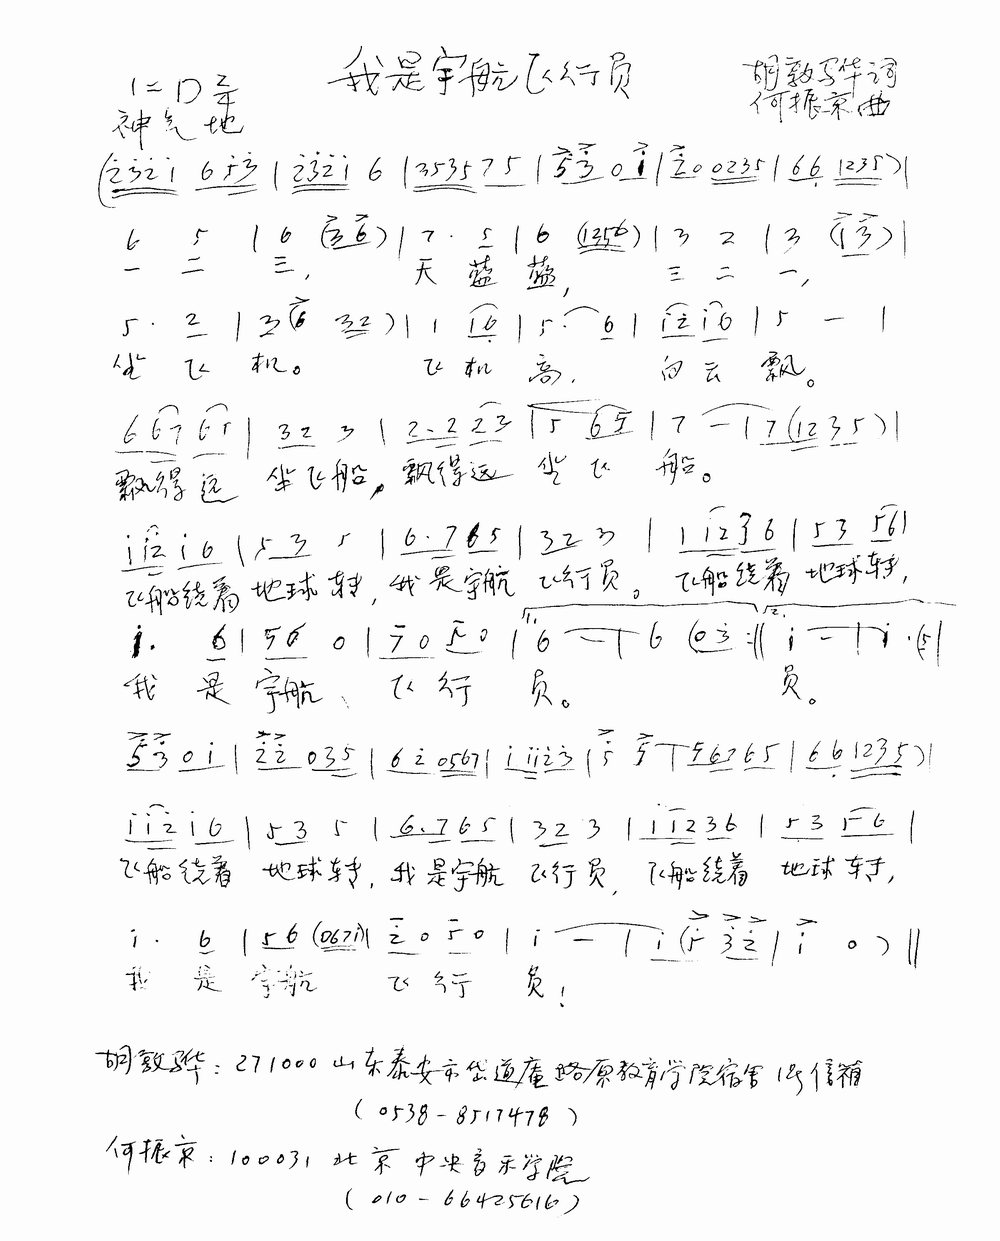 我是宇航飞行员
1=D 2/4
神气地
胡敦骅词
何振京曲
(2321 653 | 2321 6 | 3535 75 | 53 0 1 | 2 0 0235 | 66 1235) |
6 5 | 6 (36) | 7· 5 | 6 (1256) | 3 2 | 3 (13) |
一 二 三, 天 蓝 蓝, 三 二 一,
5· 2 | 3 (6 32) | 1 16 | 5· 6 | 1216 | 5 — |
坐 飞 机。 飞 机 高, 白 云 飘。
667 65 | 32 3 | 2·2 23 | 5 65 | 7 — | 7 (1235) |
飘得远 坐飞船, 飘得远 坐飞 船。
112 16 | 53 5 | 6·765 | 32 3 | 11236 | 53 56 |
飞船绕着 地球转, 我是宇航 飞行员。 飞船绕着 地球转,
1· 6 | 56 0 | 50 50 | 1. 6 — | 6 (03 :|| 2. 1 — | 1· (5 |
我 是 宇航、 飞 行 员。 员。
53 01 | 22 035 | 62 0567 | 1 1123 | 5 5 — | 56765 | 66 1235) |
112 16 | 53 5 | 6·765 | 32 3 | 11236 | 53 56 |
飞船绕着 地球转, 我是宇航 飞行员, 飞船绕着 地球转,
1· 6 | 56 (0671) | 20 50 | 1 — | 1 (5 32 | 1 0 ) ||
我 是 宇航 飞 行 员!
胡敦骅: 271000 山东泰安市岱道庵路原教育学院宿舍 1号信箱
(0538-8517478)
何振京: 100031 北京 中央音乐学院
(010-66425616)